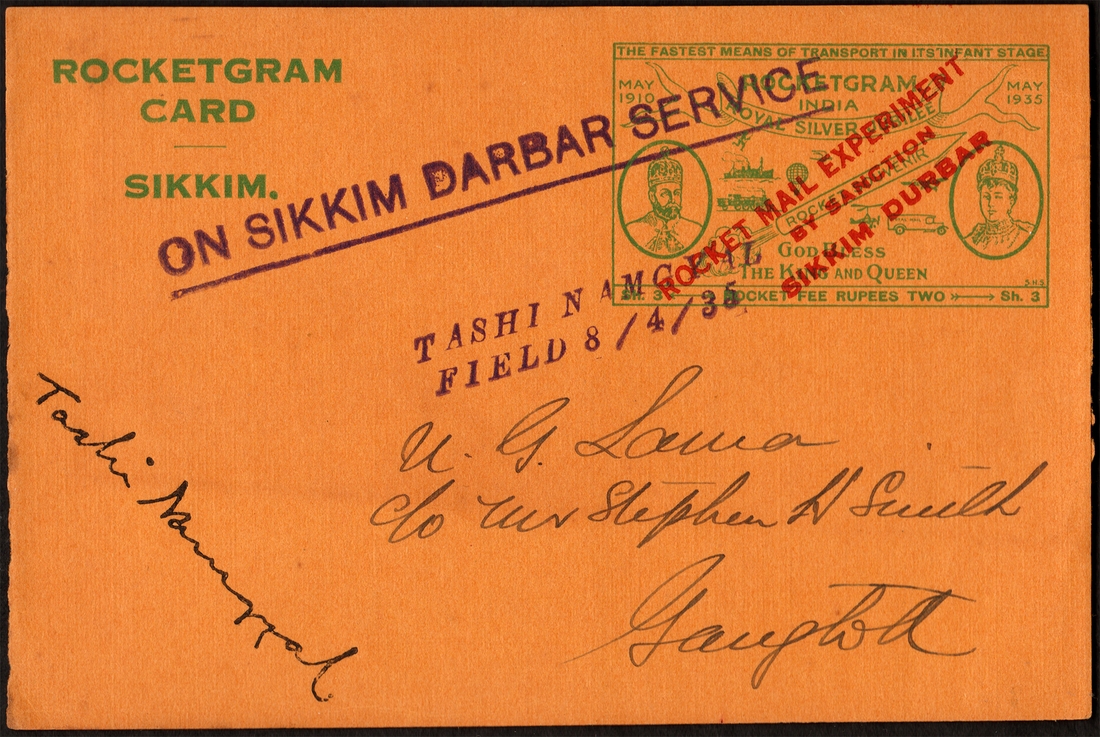 ROCKETGRAM
CARD
SIKKIM.
THE FASTEST MEANS OF TRANSPORT IN ITS INFANT STAGE
MAY
1910
ROCKETGRAM
INDIA
ROYAL SILVER JUBILEE
MAY
1935
ROCKET SOUVENIR
GOD BLESS
THE KING AND QUEEN
S.H.S
Sh. 3 ROCKET FEE RUPEES TWO Sh. 3
ROCKET MAIL EXPERIMENT
BY SANCTION
SIKKIM DURBAR
ON SIKKIM DARBAR SERVICE
TASHI NAMGYAL
FIELD 8/4/35
Tashi Namgyal
U. G. Lama
c/o Mr Stephen H Smith
Gangtok